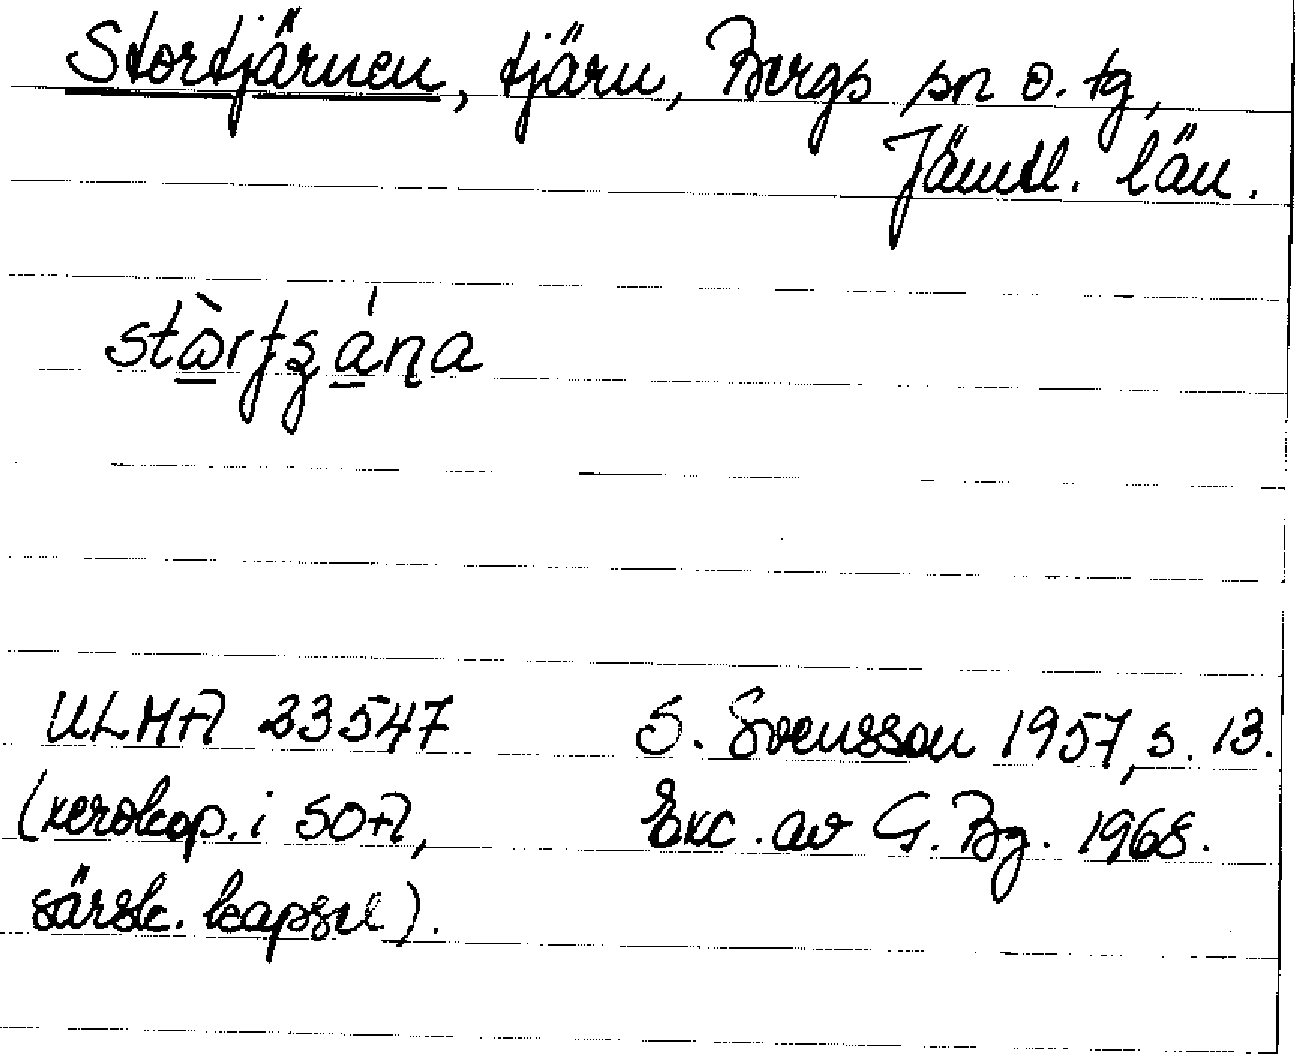 Stortjärnen, tjärn, Bergs sn o. tg,
Jämtl. län.
ULMA 23547
S. Svensson 1957, s. 13.
(xerokop. i SOA,
Exc. av G. Bg. 1968.
särsk. kapsel).